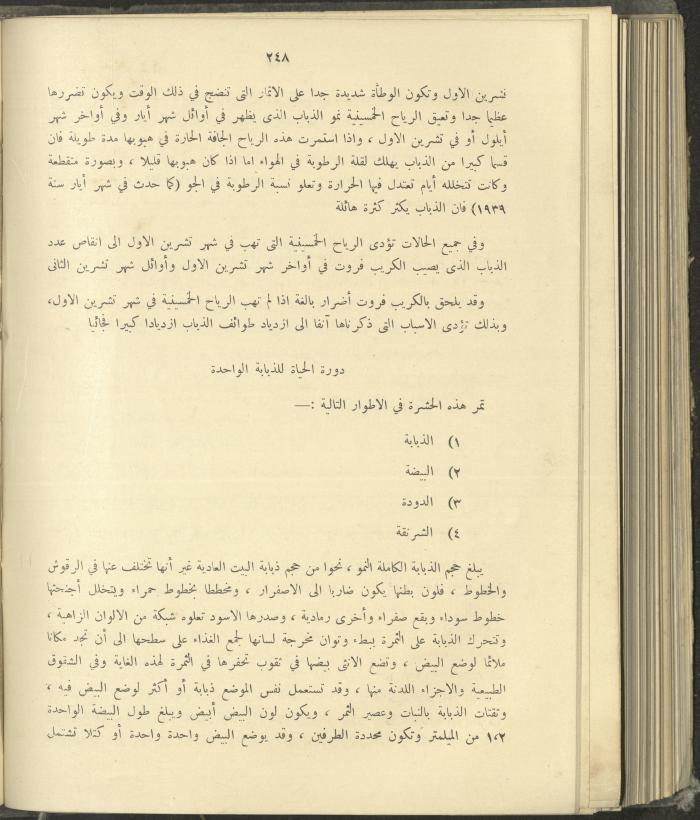 ٢٤٨
تشرين الاول وتكون الوطأة شديدة جدا على الاثمار التى تنضج في ذلك الوقت ويكون تضررها
عظيما جدا وتعيق الرياح الخمسينية نمو الذباب الذى يظهر في أوائل شهر أيار وفي أواخر شهر
أيلول أو في تشرين الاول ، واذا استمرت هذه الرياح الجافة الحارة في هبوبها مدة طويلة فان
قسما كبيرا من الذباب يهلك لقلة الرطوبة في الهواء اما اذا كان هبوبها قليلا ، وبصورة متقطعة
وكانت تتخلله أيام تعتدل فيها الحرارة وتعلو نسبة الرطوبة في الجو (كما حدث في شهر أيار سنة
١٩٣٩) فان الذباب يكثر كثرة هائلة
وفي جميع الحالات تؤدى الرياح الخمسينية التى تهب في شهر تشرين الاول الى انقاص عدد
الذباب الذى يصيب الكريب فروت في أواخر شهر تشرين الاول وأوائل شهر تشرين الثانى
وقد يلحق بالكريب فروت أضرار بالغة اذا لم تهب الرياح الخمسينية في شهر تشرين الاول،
وبذلك تؤدى الاسباب التى ذكرناها آنفا الى ازدياد طوائف الذباب ازديادا كبيرا فجائيا
دورة الحياة للذبابة الواحدة
تمر هذه الحشرة في الاطوار التالية :—
١) الذبابة
٢) البيضة
٣) الدودة
٤) الشرنقة
يبلغ حجم الذبابة الكاملة النمو ، نحوا من حجم ذبابة البيت العادية غير أنها تختلف عنها في الرقوش
والخطوط ، فلون بطنها يكون ضاربا الى الاصفرار ، ومخططا بخطوط حمراء ويتخلل أجنحتها
خطوط سوداء وبقع صفراء وأخرى رمادية ، وصدرها الاسود تعلوه شبكة من الالوان الزاهية ،
وتتحرك الذبابة على الثمرة ببطء وتوان مخرجة لسانها لجمع الغذاء على سطحها الى أن تجد مكانا
ملائما لوضع البيض ، وتضع الانثى بيضها في ثقوب تحفرها في الثمرة لهذه الغاية وفي الشقوق
الطبيعية والاجزاء اللدنة منها ، وقد تستعمل نفس الموضع ذبابة أو أكثر لوضع البيض فيه ،
وتقتات الذبابة بالنبات وعصير الثمر ، ويكون لون البيض أبيض ويبلغ طول البيضة الواحدة
١،٢ من الميلمتر وتكون محددة الطرفين ، وقد يوضع البيض واحدة واحدة أو كتلا تشتمل